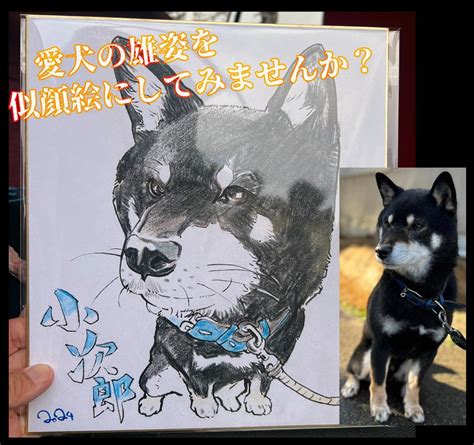 愛犬の雄姿を
似顔絵にしてみませんか？
小次郎
2024